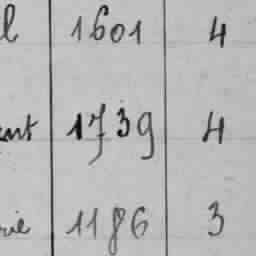 l 1601 4
ent 1739 4
rie 1186 3